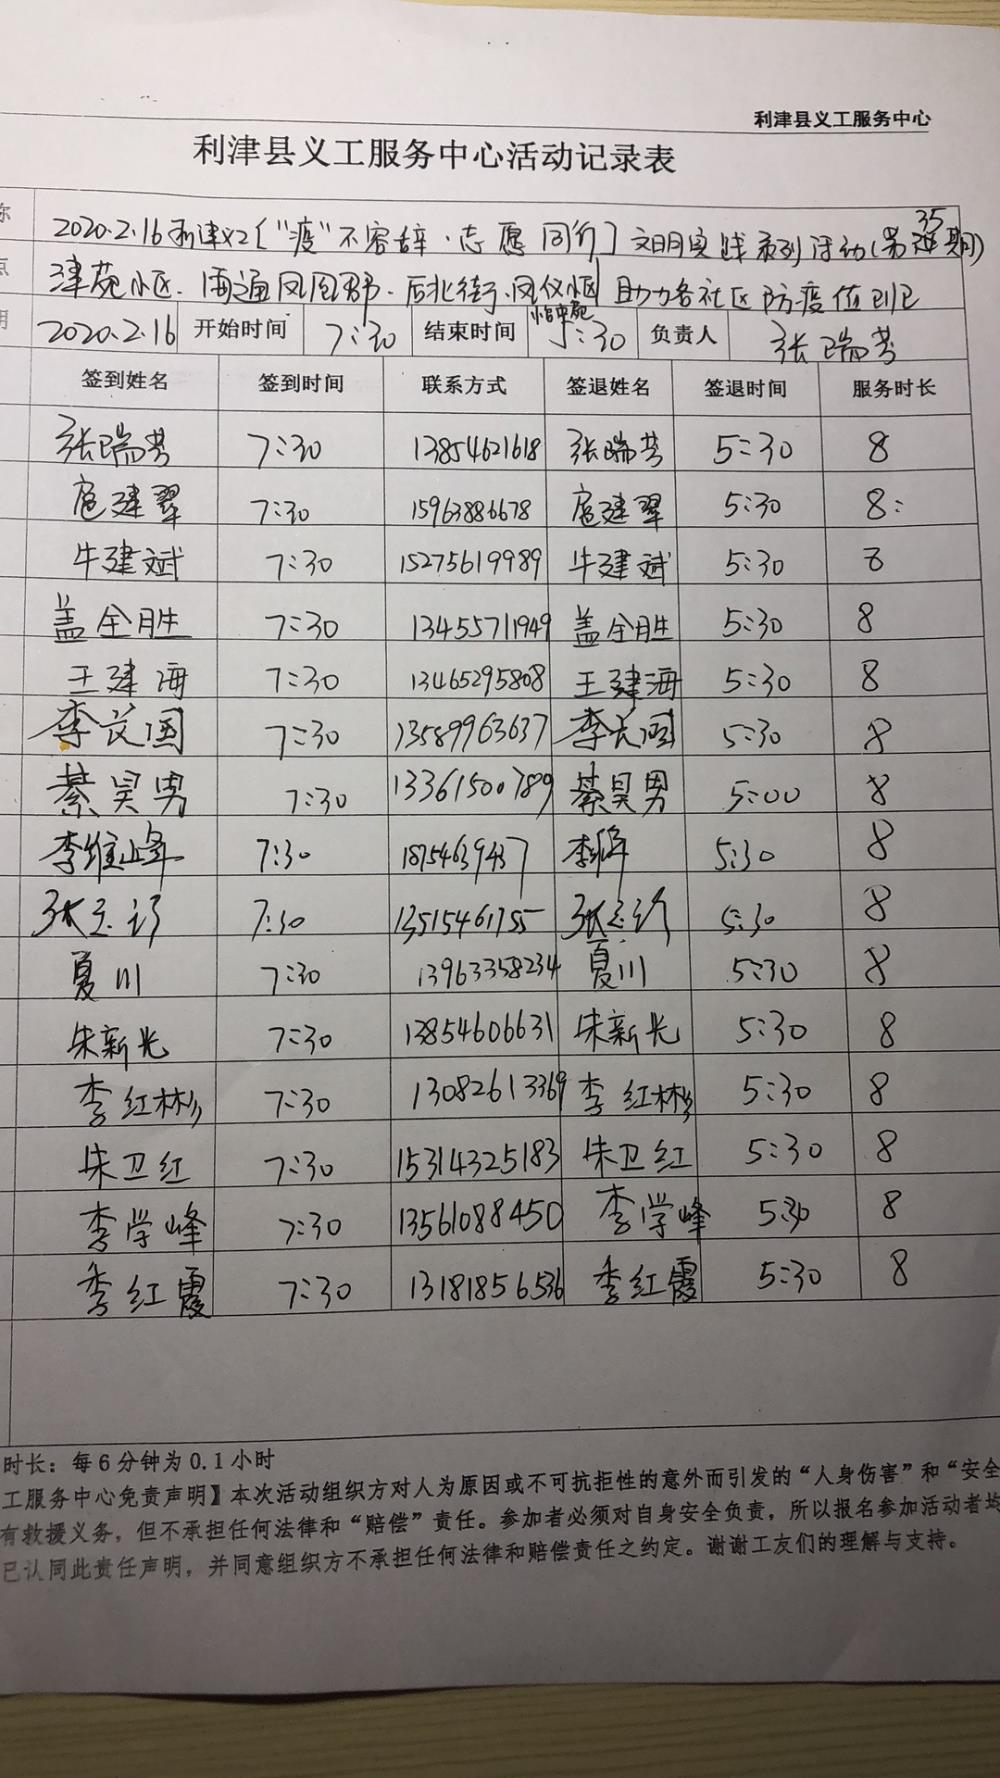 利津县义工服务中心
利津县义工服务中心活动记录表
称 2020.2.16利津义工〔“疫”不容辞·志愿同行〕文明实践系列活动(第35期)
点 津苑小区、凤凰郡、后北街、凤仪小区 助力各社区防疫值班
怡申苑
期 2020.2.16 开始时间 7:30 结束时间 5:30 负责人 张瑞芳
签到姓名 签到时间 联系方式 签退姓名 签退时间 服务时长
张瑞芳 7:30 13854621618 张瑞芳 5:30 8
扈建翠 7:30 15963886678 扈建翠 5:30 8:
牛建斌 7:30 15275619989 牛建斌 5:30 8
盖全胜 7:30 13455711949 盖全胜 5:30 8
王建海 7:30 13465295808 王建海 5:30 8
李长国 7:30 13589963637 李长国 5:30 8
綦昊男 7:30 13361500789 綦昊男 5:00 8
李维峰 7:30 18754639437 李维峰 5:30 8
张 7:30 13515461755 张 5:30 8
夏川 7:30 13963358234 夏川 5:30 8
朱新光 7:30 13854606631 朱新光 5:30 8
李红彬 7:30 13082613369 李红彬 5:30 8
朱卫红 7:30 15314325183 朱卫红 5:30 8
李学峰 7:30 13561088450 李学峰 5:30 8
李红霞 7:30 13181856536 李红霞 5:30 8
时长：每6分钟为0.1小时
工服务中心免责声明】本次活动组织方对人为原因或不可抗拒性的意外而引发的“人身伤害”和“安全
有救援义务，但不承担任何法律和“赔偿”责任。参加者必须对自身安全负责，所以报名参加活动者均
已认同此责任声明，并同意组织方不承担任何法律和赔偿责任之约定。谢谢工友们的理解与支持。